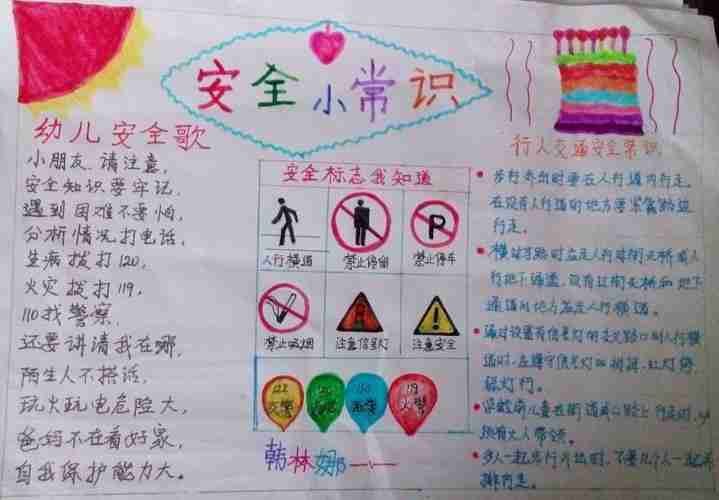 安全小常识
幼儿安全歌
小朋友，请注意，
安全知识要牢记，
遇到困难不要怕，
分析情况打电话，
生病拨打120，
火灾拨打119，
110找警察，
还要讲清我在哪，
陌生人不搭话，
玩火玩电危险大，
爸妈不在看好家，
自我保护能力大。
安全标志我知道
人行横道
禁止停留
P
禁止停车
禁止吸烟
注意信号灯
注意安全
122
交警
120
110
119
火警
韩林娜
行人交通安全常识
步行外出时要在人行道内行走，
在没有人行道的地方要紧靠路边
行走。
横过马路时应走人行过街天桥或人
行地下通道，没有过街天桥和地下
通道的地方应走人行横道。
通过设置有信号灯的交叉路口的人行横
道时，应遵守信号灯的
红灯停，
绿灯行。
学龄前儿童在街道或公路上行走时，
须有大人带领。
多人一起步行外出时，不要几个人一起并
排行走。